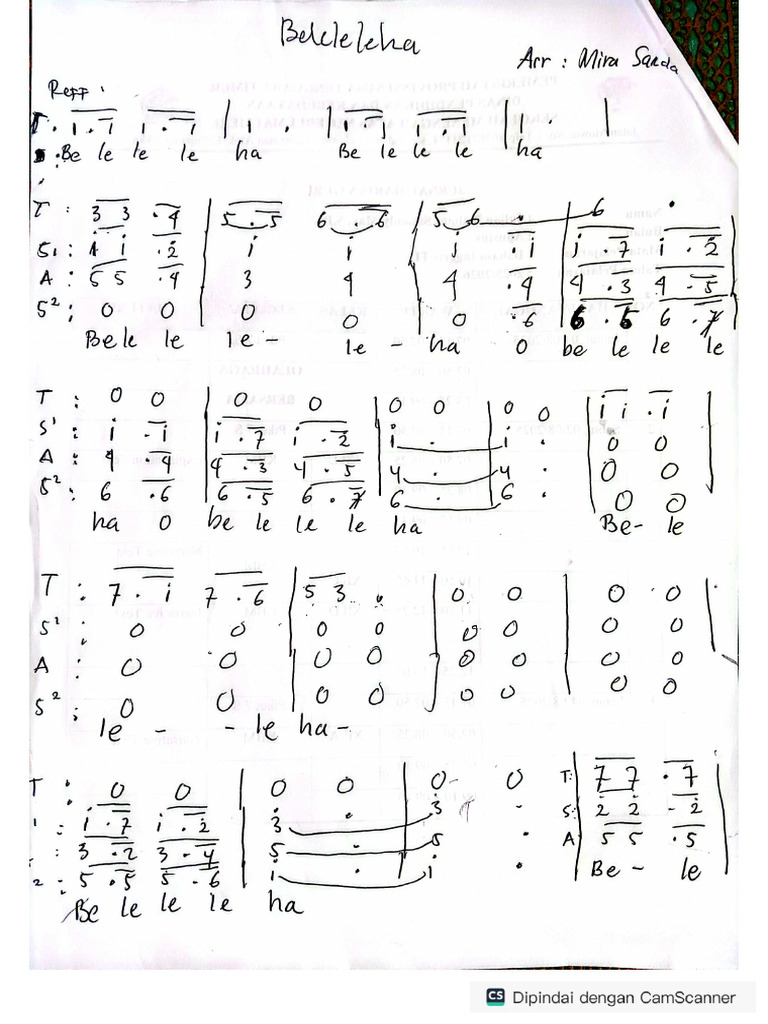 Beleleleha
Arr : Mira Sarda
Reff :
T : 1 . 1 1 . 1 | 1 . | 1 . 1 1 . 1 | 1 . |
Be le le le ha Be le le le ha
T : 3 3 . 4 | 5 . 5 6 . 6 | 5 6 . | 6 .
S1 : 1 1 . 2 | 1 1 | 1 . 1 | 1 . 7 1 . 2
A : 5 5 . 4 | 3 4 | 4 . 4 | 4 . 3 4 . 5
S2 : 0 0 | 0 0 | 0 . 6 | 6 . 6 6 . 7
Bele le le - le - ha 0 be le le le
T : 0 0 | 0 0 | 0 0 | 0 0 | i i . i
S1 : i . i | i . 7 i . 2 | i . | i . | 0 0
A : 4 . 4 | 4 . 3 4 . 5 | 4 . | 4 . | 0 0
S2 : 6 . 6 | 6 . 5 6 . 7 | 6 . | 6 . | 0 0
ha 0 be le le le ha Be- le
T : 7 . i 7 . 6 | 5 3 . | 0 0 | 0 0
S1 : 0 0 | 0 0 | 0 0 | 0 0
A : 0 0 | 0 0 | 0 0 | 0 0
S2 : 0 0 | 0 0 | 0 0 | 0 0
le - - le ha -
T : 0 0 | 0 0 | 0 0 T: | 7 7 . 7
: i . 7 i . 2 | 3 . | 3 - S: 2 2 - 2
: 3 . 2 3 - 4 | 5 . | 5 . A 5 5 . 5
2 : 5 . 5 5 . 6 | i . | i . Be - le
Be le le le ha
CS Dipindai dengan CamScanner